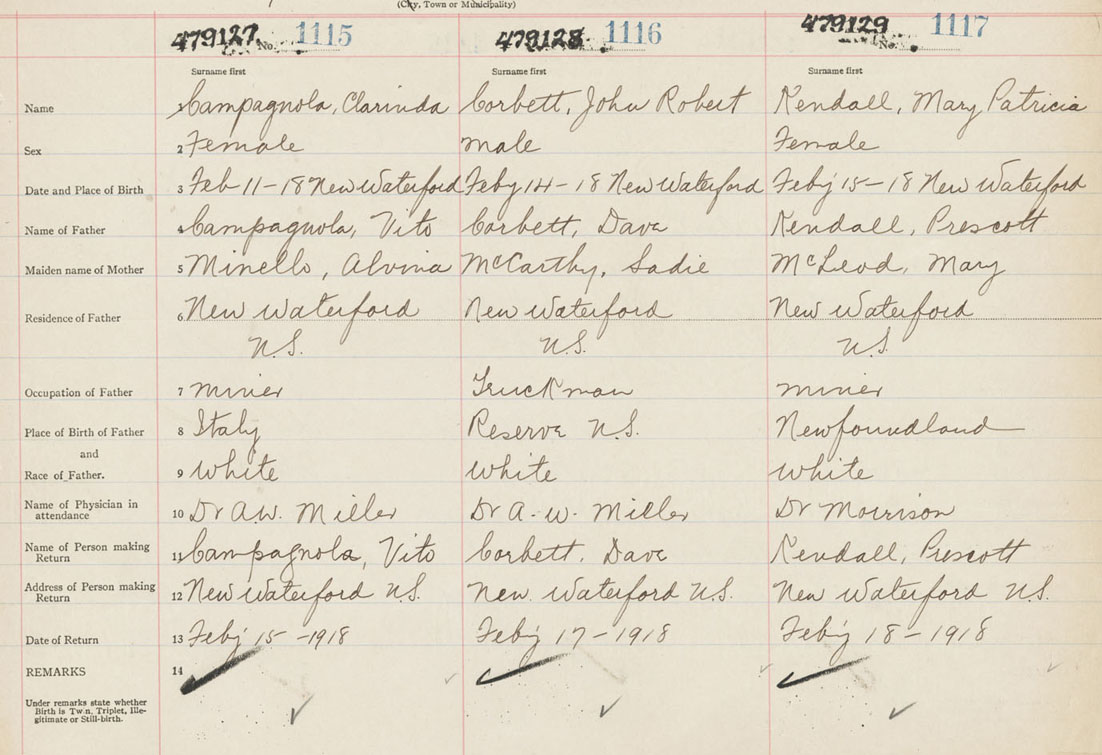 (City, Town or Municipality)
479127 No. 1115 479128 1116 479129 No. 1117
Surname first Surname first Surname first
Name 1 Campagnola, Clarinda Corbett, John Robert Kendall, Mary Patricia
Sex 2 Female male Female
Date and Place of Birth 3 Feb 11-18 New Waterford Feby 14-18 New Waterford Feby 15-18 New Waterford
Name of Father 4 Campagnola, Vito Corbett, Dave Kendall, Prescott
Maiden name of Mother 5 Minello, Alvina McCarthy, Sadie McLeod, Mary
Residence of Father 6 New Waterford New Waterford New Waterford
N.S. N.S. N.S.
Occupation of Father 7 miner Truckman miner
Place of Birth of Father 8 Italy Reserve N.S. Newfoundland
and
Race of Father. 9 white white white
Name of Physician in
attendance 10 Dr A.W. Miller Dr A.W. Miller Dr Morrison
Name of Person making
Return 11 Campagnola, Vito Corbett, Dave Kendall, Prescott
Address of Person making
Return 12 New Waterford N.S. New Waterford N.S. New Waterford N.S.
Date of Return 13 Feby 15-1918 Feby 17-1918 Feby 18-1918
REMARKS 14
Under remarks state whether
Birth is Twin, Triplet, Ille-
gitimate or Still-birth.